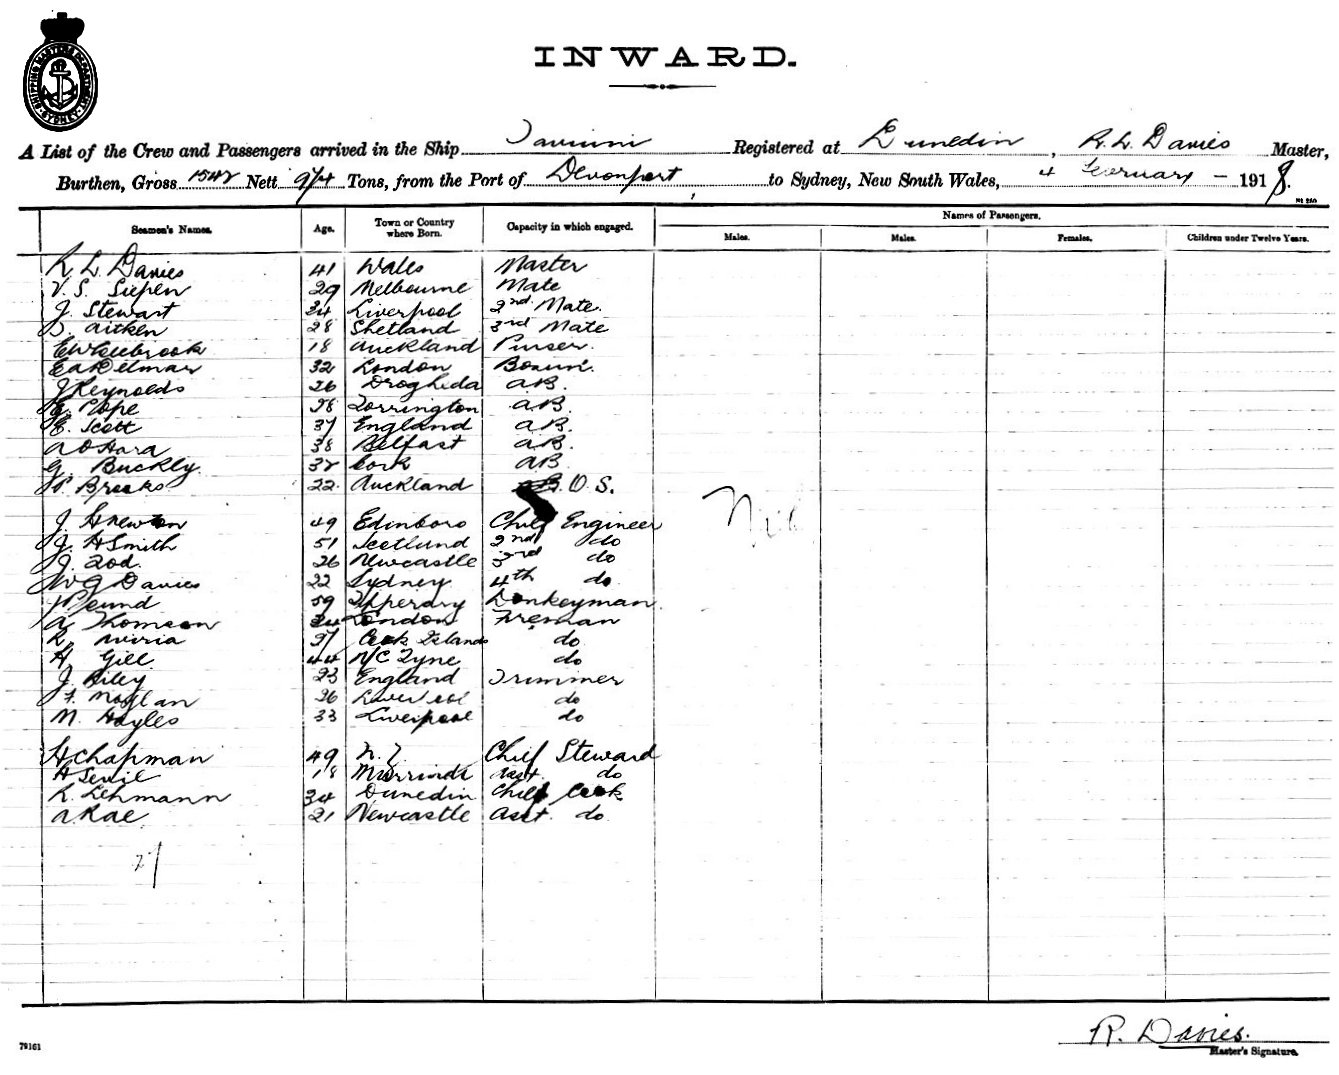 SHIPPING MASTERS DEPARTMENT SYDNEY
INWARD.
A List of the Crew and Passengers arrived in the Ship Registered at Dunedin, R. L. Davies Master,
Burthen, Gross 1542 Nett 974 Tons, from the Port of Devonport to Sydney, New South Wales, 4 February - 1918.
Seamen's Names. Age. Town or Country where Born. Capacity in which engaged. Names of Passengers.
Males. Males. Females. Children under Twelve Years.
R. L. Davies 41 Wales Master
V. S. 29 Melbourne Mate
J. Stewart 34 Liverpool 2nd Mate.
Aitken 28 Shetland 3rd Mate
18 Auckland Purser.
32 London Bosun.
J Reynolds 26 Drogheda AB.
E. Pope 28 Torrington AB.
E. Scott 37 England AB.
A O Hara 38 Belfast AB.
G. Buckly. 32 Cork AB
P. Brooks 22 Auckland O.S.
J. 49 Edinboro Chief Engineer
J. H Smith 51 Scotland 2nd do
J. 26 Newcastle 3rd do
W G Davies 22 Sydney. 4th do
59 Tipperary Donkeyman.
A Thomson 34 London Fireman
R. 37 Cook Islands do
H. Gill 44 N/C Tyne do
J. Riley 23 England Trimmer
F. Moylan 26 Liverpool do
M. Hayles 33 Liverpool do
H Chapman 49 N. Z. Chief Steward
H 18 Asst. do
R. Lehmann 34 Dunedin Chief Cook
A. Rae 21 Newcastle Asst. do
Nil
27
R. Davies.
Master's Signature.
79161